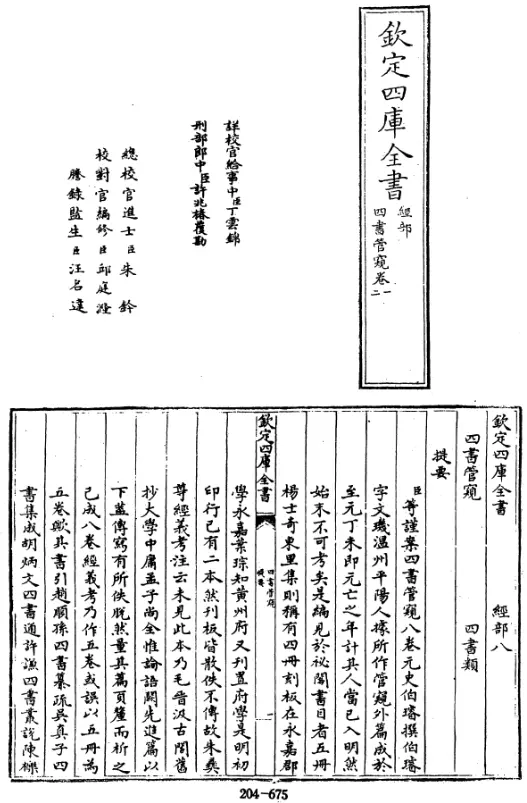 欽定四庫全書
經部
四書管窺卷一
二
詳校官給事中臣丁雲錦
刑部郎中臣許兆椿覆勘
總校官進士臣朱鈐
校對官編修臣邱庭漋
謄錄監生臣汪名達
欽定四庫全書 經部八
四書管窺 四書類
提要
臣等謹案四書管窺八卷元史伯璿撰伯璿
字文璣温州平陽人據所作管窺外篇成於
至元丁未即元亡之年計其人當已入明然
始末不可考矣是編見於祕閣書目者五冊
楊士奇東里集則稱有四冊刻板在永嘉郡
欽定四庫全書
四書管窺
提要
一
學永嘉葉琮知黄州府又刊置府學是明初
印行已有二本然刊板皆散佚不傳故朱彝
尊經義考注云未見此本乃毛晉汲古閣舊
抄大學中庸孟子尚全惟論語闕先進篇以
下蓋傳寫有所佚脱然量其篇頁釐而析之
已成八卷經義考乃作五卷或誤以五冊為
五卷歟其書引趙順孫四書纂疏吳真子四
書集成胡炳文四書通許謙四書叢說陳櫟
204-675